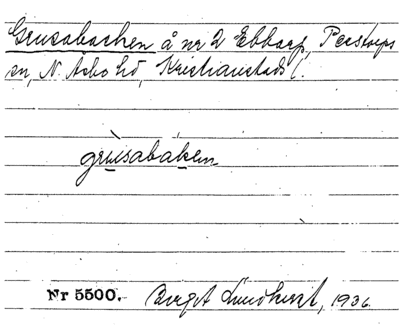 Grusabacken å nr 2 Ebbarp, Perstorps
sn, N. Åsbo hd, Kristianstads l.
grùsabáken
Nr 5500. Birgit Lundkvist, 1936.